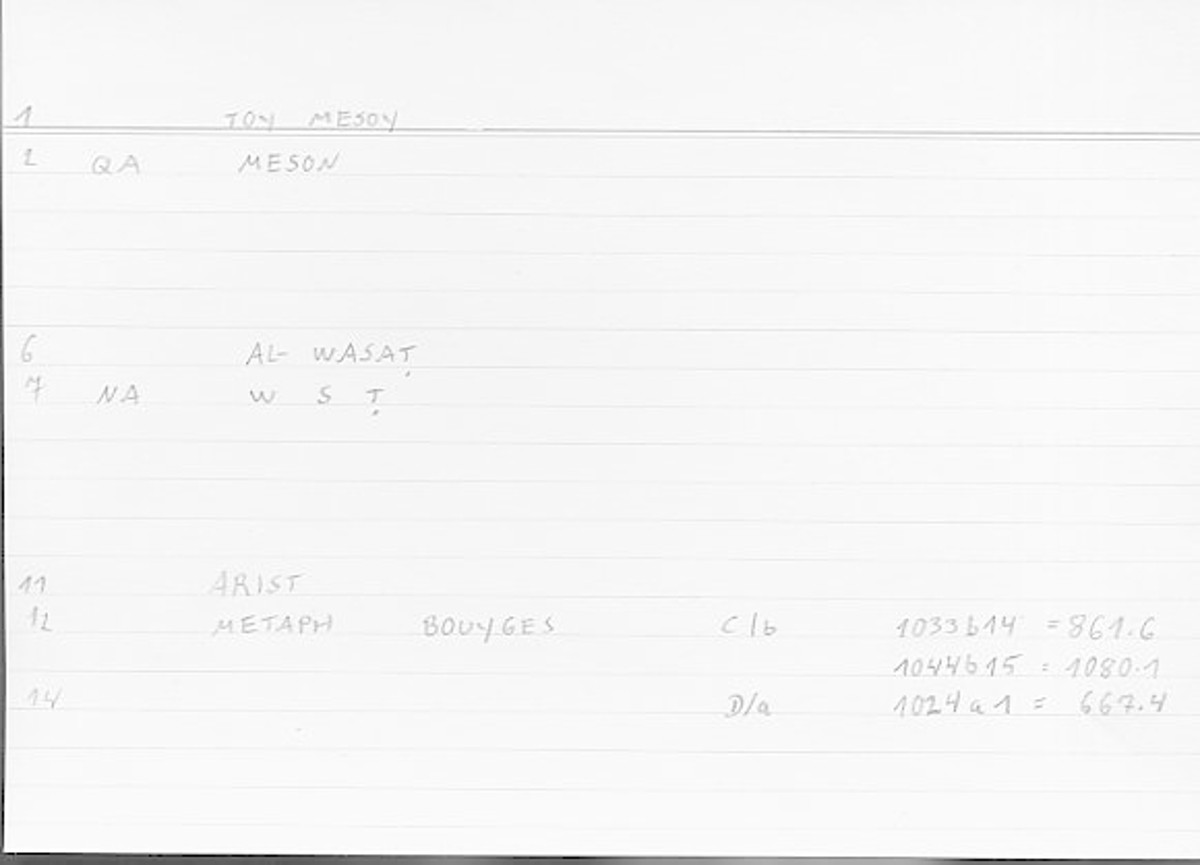 1 TOY MESOY
2 QA MESON
6 AL- WASAṬ
7 NA W S Ṭ
11 ARIST
12 METAPH BOUYGES C/b 1033b14 = 861.6
1044b15 = 1080.1
14 D/a 1024a1 = 667.4